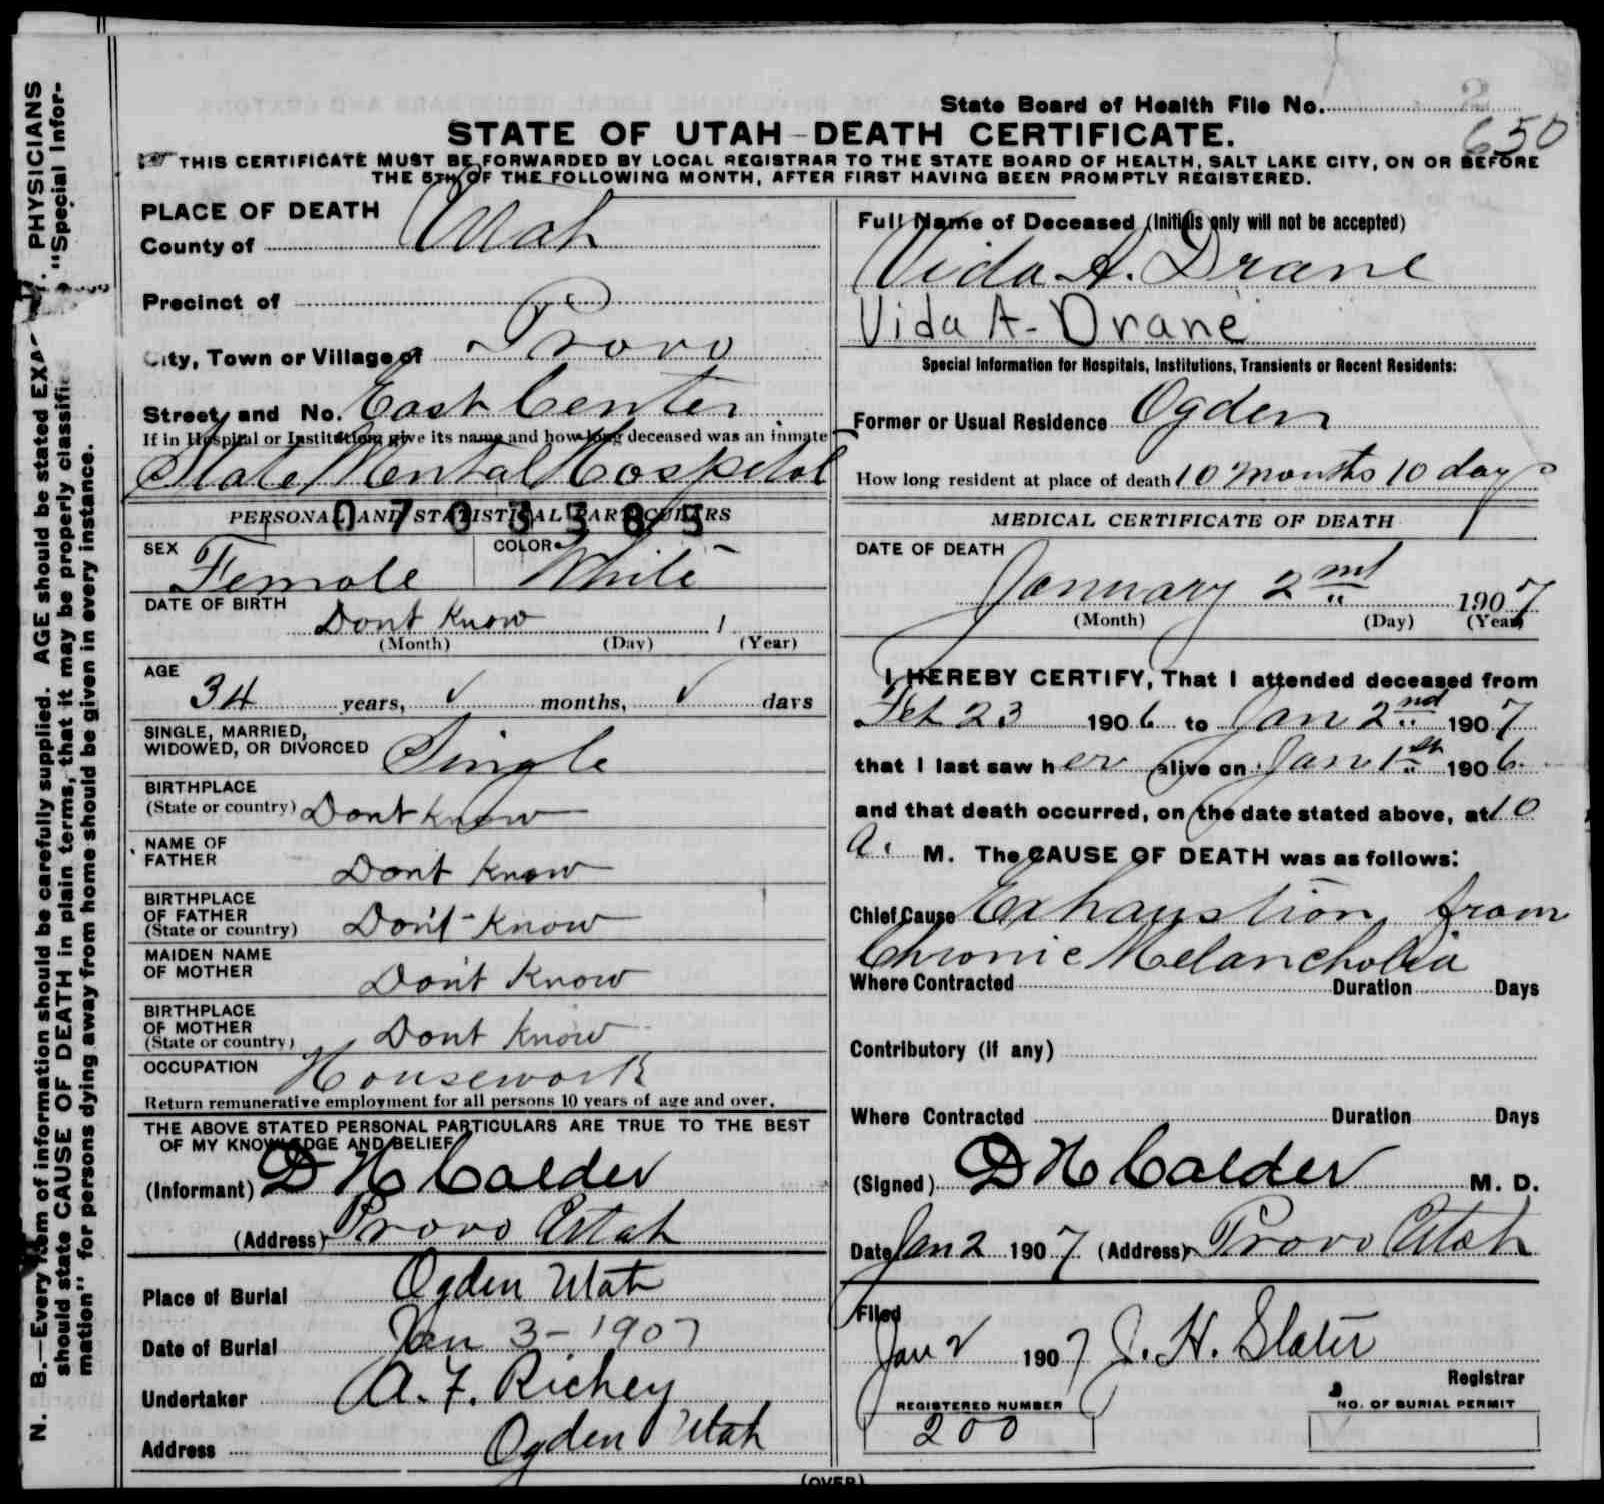 State Board of Health File No. 2
650
STATE OF UTAH—DEATH CERTIFICATE.
THIS CERTIFICATE MUST BE FORWARDED BY LOCAL REGISTRAR TO THE STATE BOARD OF HEALTH, SALT LAKE CITY, ON OR BEFORE
THE 5TH OF THE FOLLOWING MONTH, AFTER FIRST HAVING BEEN PROMPTLY REGISTERED.
PLACE OF DEATH
County of Utah
Precinct of
City, Town or Village of Provo
Street and No. East Center
If in Hospital or Institution give its name and how long deceased was an inmate
State Mental Hospital
PERSONAL AND STATISTICAL PARTICULARS
0703385
SEX Female COLOR White
DATE OF BIRTH
Dont Know 1
(Month) (Day) (Year)
AGE
34 years, ✓ months, ✓ days
SINGLE, MARRIED,
WIDOWED, OR DIVORCED Single
BIRTHPLACE
(State or country) Dont know
NAME OF
FATHER Dont Know
BIRTHPLACE
OF FATHER
(State or country) Don't Know
MAIDEN NAME
OF MOTHER Don't Know
BIRTHPLACE
OF MOTHER
(State or country) Dont Know
OCCUPATION Housework
Return remunerative employment for all persons 10 years of age and over.
THE ABOVE STATED PERSONAL PARTICULARS ARE TRUE TO THE BEST
OF MY KNOWLEDGE AND BELIEF
(Informant) D H Calder
(Address) Provo Utah
Place of Burial Ogden Utah
Date of Burial Jan 3-1907
Undertaker A. F. Richey
Address Ogden Utah
Full Name of Deceased (Initials only will not be accepted)
Vida A. Drane
Vida A- Drane
Special Information for Hospitals, Institutions, Transients or Recent Residents:
Former or Usual Residence Ogden
How long resident at place of death 10 months 10 days
MEDICAL CERTIFICATE OF DEATH
DATE OF DEATH
January 2nd 1907
(Month) (Day) (Year)
I HEREBY CERTIFY, That I attended deceased from
Feb 23 1906 to Jan 2nd 1907
that I last saw her alive on Jan 1st 1906
and that death occurred, on the date stated above, at 10
a. M. The CAUSE OF DEATH was as follows:
Chief Cause Exhaustion from
Chronic Melancholia
Where Contracted Duration Days
Contributory (if any)
Where Contracted Duration Days
(Signed) D H Calder M. D.
Date Jan 2 1907 (Address) Provo Utah
Filed
Jan 2 1907 J. H. Slater
Registrar
REGISTERED NUMBER
200
NO. OF BURIAL PERMIT
(OVER)
N. B.—Every item of information should be carefully supplied. AGE should be stated EXA PHYSICIANS
should state CAUSE OF DEATH in plain terms, that it may be properly classified "Special Infor-
mation" for persons dying away from home should be given in every instance.